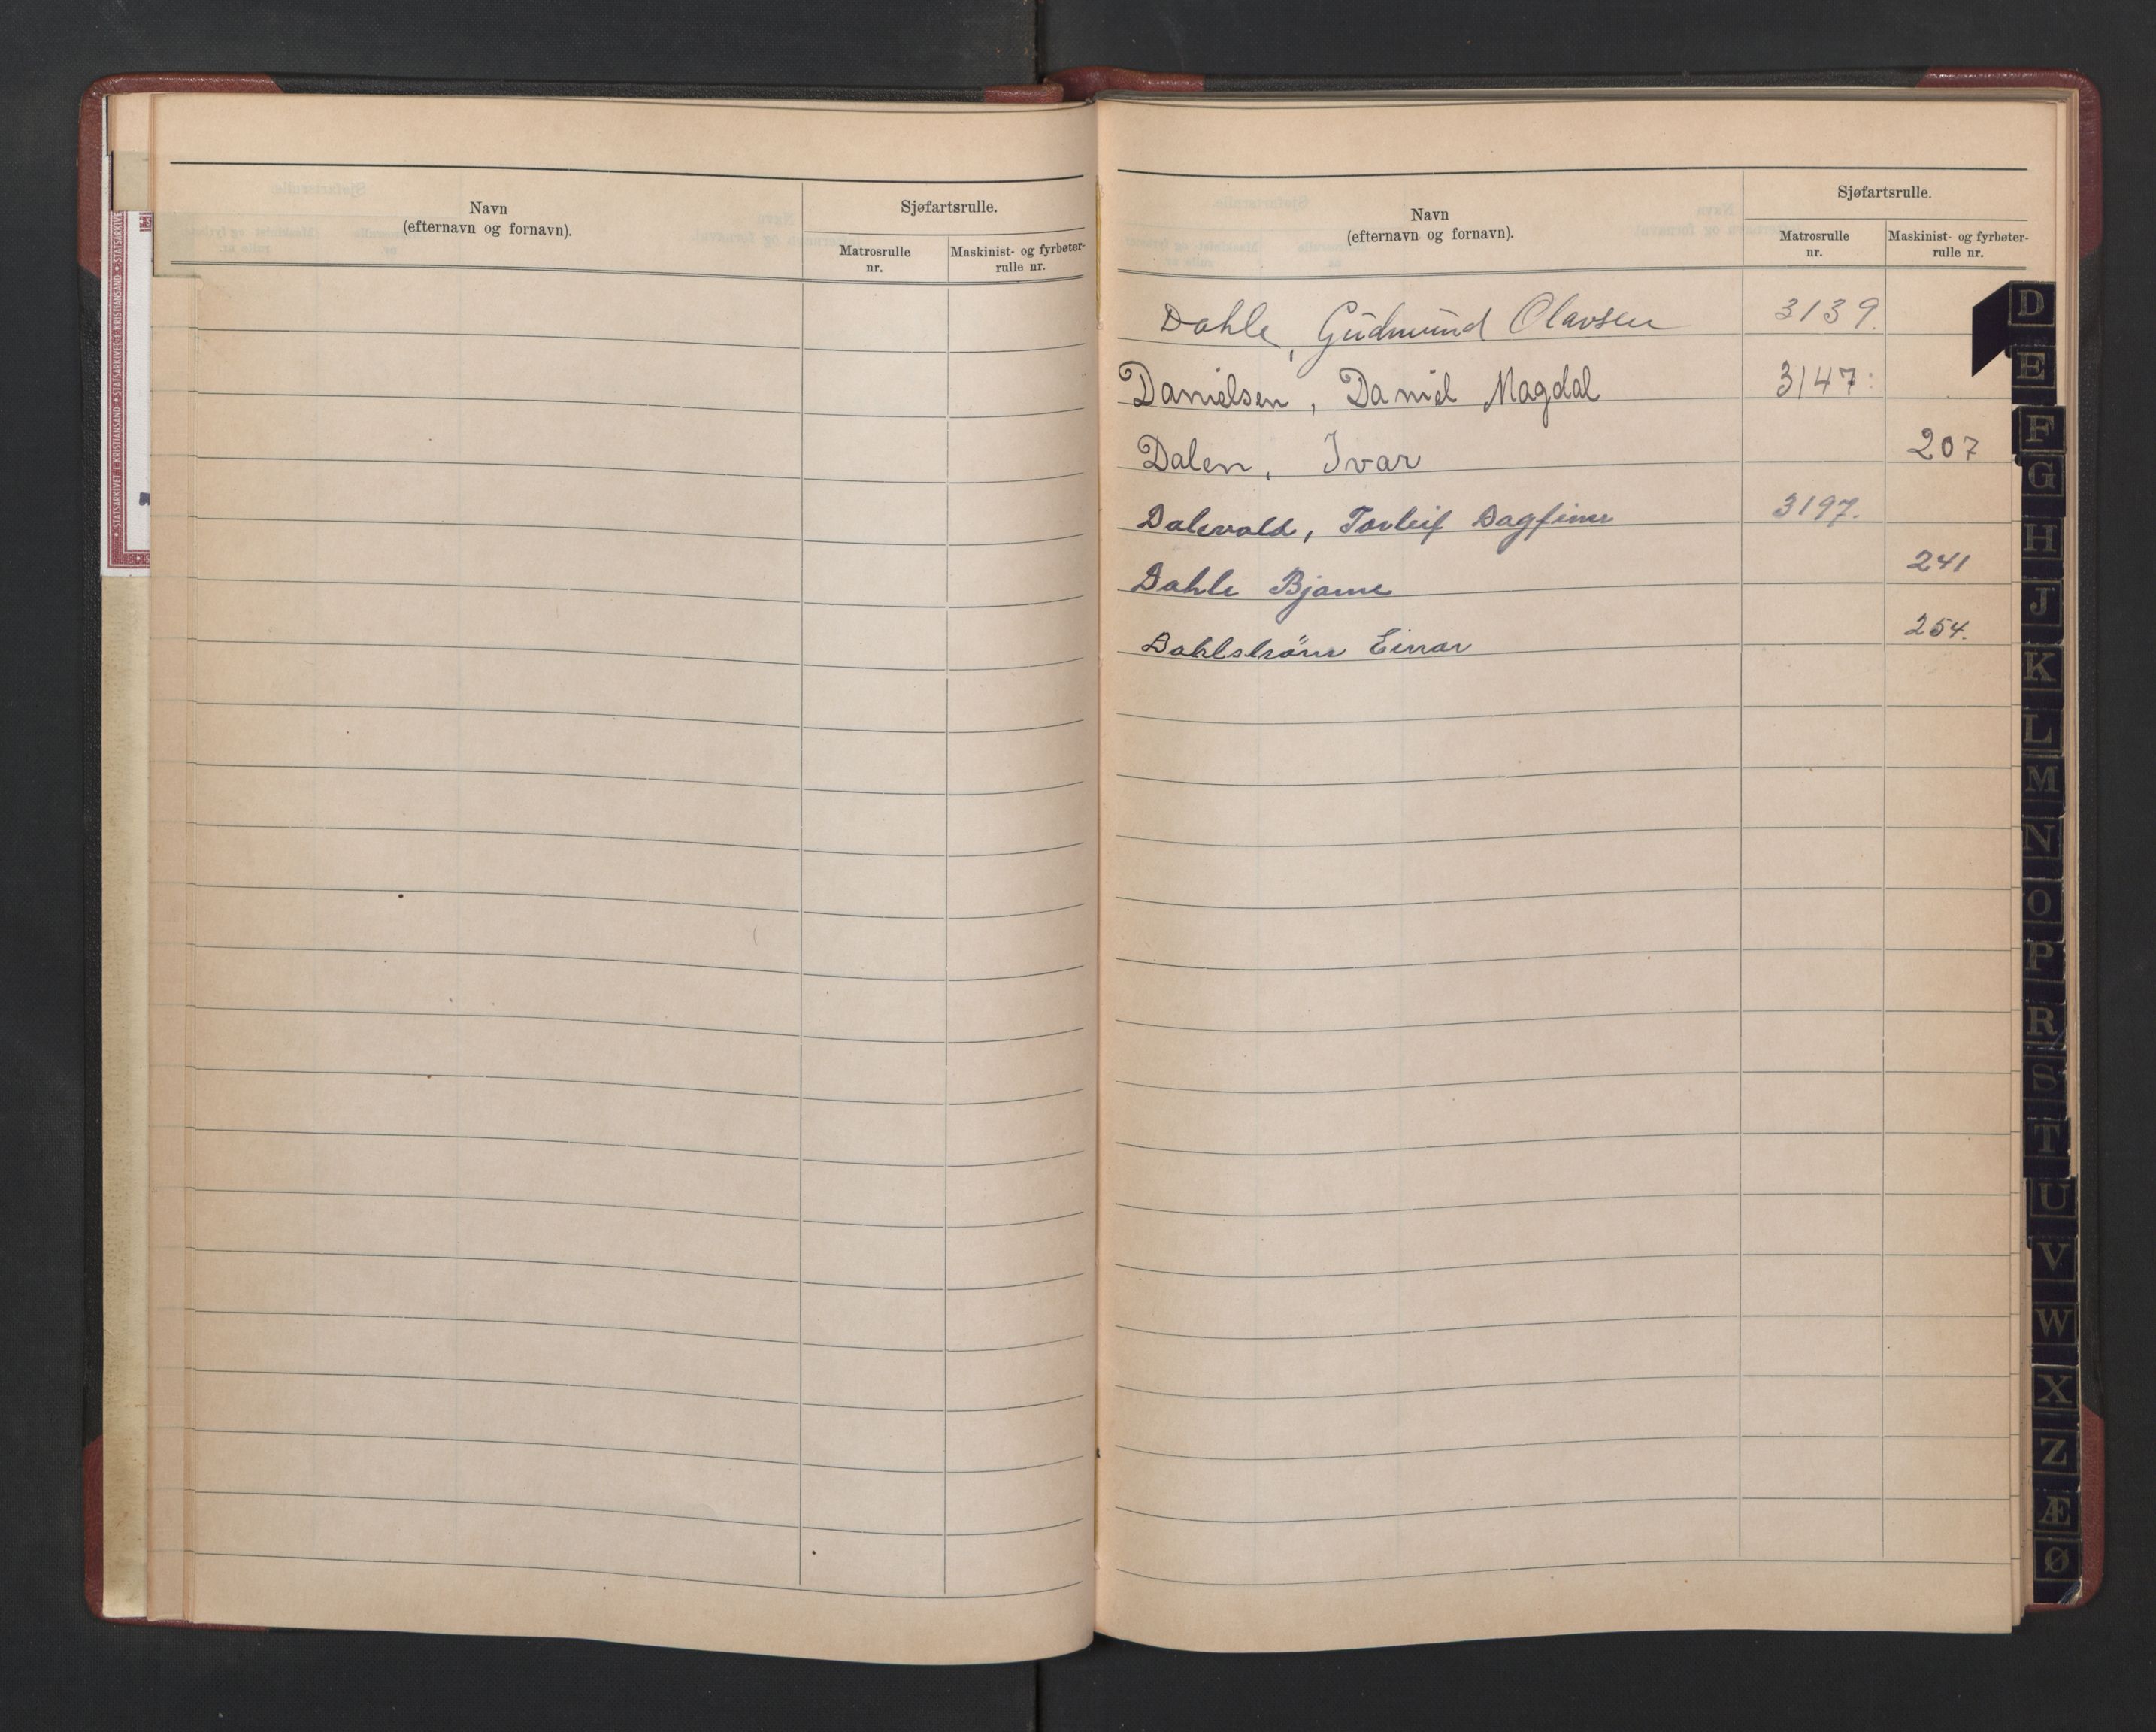 Navn
(efternavn og fornavn).
Sjøfartsrulle.
Matrosrulle
nr.
Maskinist- og fyrbøter-
rulle nr.
STATSARKIVET I KRISTIANSAND • STATSARKIVET I KRISTIANSAND • STATSARKIVE
Navn
(efternavn og fornavn).
Sjøfartsrulle.
Matrosrulle
nr.
Maskinist- og fyrbøter-
rulle nr.
Dahle, Gudmund Olavsen 3139.
Danielsen, Daniel Magdal 3147.
Dalen, Ivar 207
Dalevold, Torleif Dagfinn 3197.
Dahle Bjarne 241
Dahlström Einar 254.
D
E
F
G
H
J
K
L
M
N
O
P
R
S
T
U
V
W
X
Z
Æ
Ø